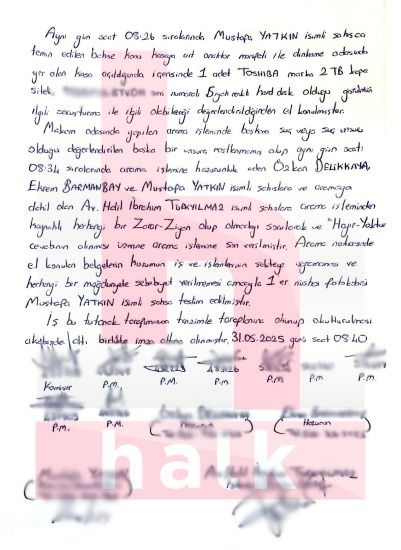 Aynı gün saat 08:26 sıralarında Mustafa YATKIN isimli şahısca
temin edilen bahse konu kasaya ait anahtar marifeti ile dinlenme odasında
yer alan kasa açıldığında içerisinde 1 adet TOSHIBA marka 2 TB kapa
siteli, seri numaralı Siyah renkli hard disk olduğu görüldü
ilgili soruşturma ile ilgili olabileceği değerlendirildiğinden el konulmuştur.
Makam odasında yapılan arama işleminde başkaca suç veya suç unsuru
olduğu değerlendirilen başka bir unsura rastlanmamış olup aynı gün saat
08:34 sıralarında arama işlemine hazurunluk eden Özkan DELİKKAYA,
Ekrem BARMANBAY ve Mustafa YATKIN isimli şahıslara ve aramaya
dahil olan Av. Halil İbrahim TURYILMAZ isimli şahıslara arama işleminden
kaynaklı herhangi bir Zarar-Ziyan olup olmadığı sorularak ve "Hayır-Yoktur"
cevabının alınması üzerine arama işlemine son verilmiştir. Arama neticesinde
el konulan belgelerin kurumun iş ve işlemlerinin sekteye uğramaması ve
herhangi bir mağduriyete sebebiyet verilmemesi amacıyla 1 er nüsha fotokobisi
Mustafa YATKIN isimli şahsa teslim edilmiştir.
İş bu tutanak tarafımızdan tanzimle taraflarına okunup okutturulması
akabinde altı birlikte imza altına alınmıştır. 31.05.2025 günü saat 08:40
Komiser P.M. P.M. P.M. P.M. P.M.
P.M. P.M. Hazurun Hazurun
halk